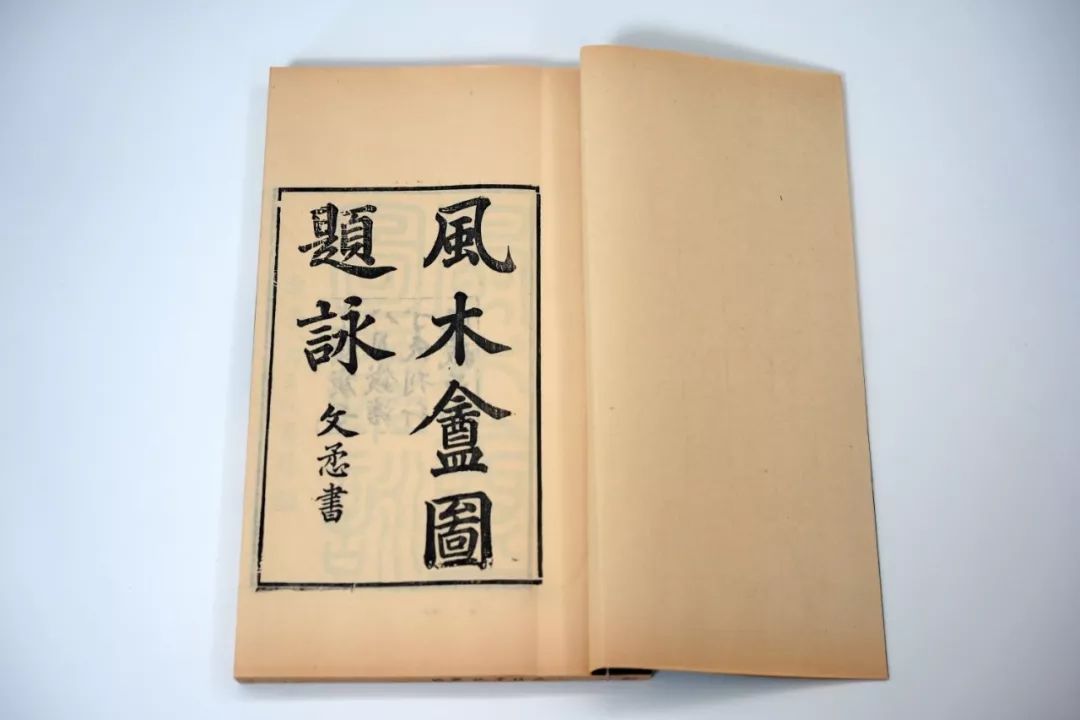 風木盦圖
題詠
文書